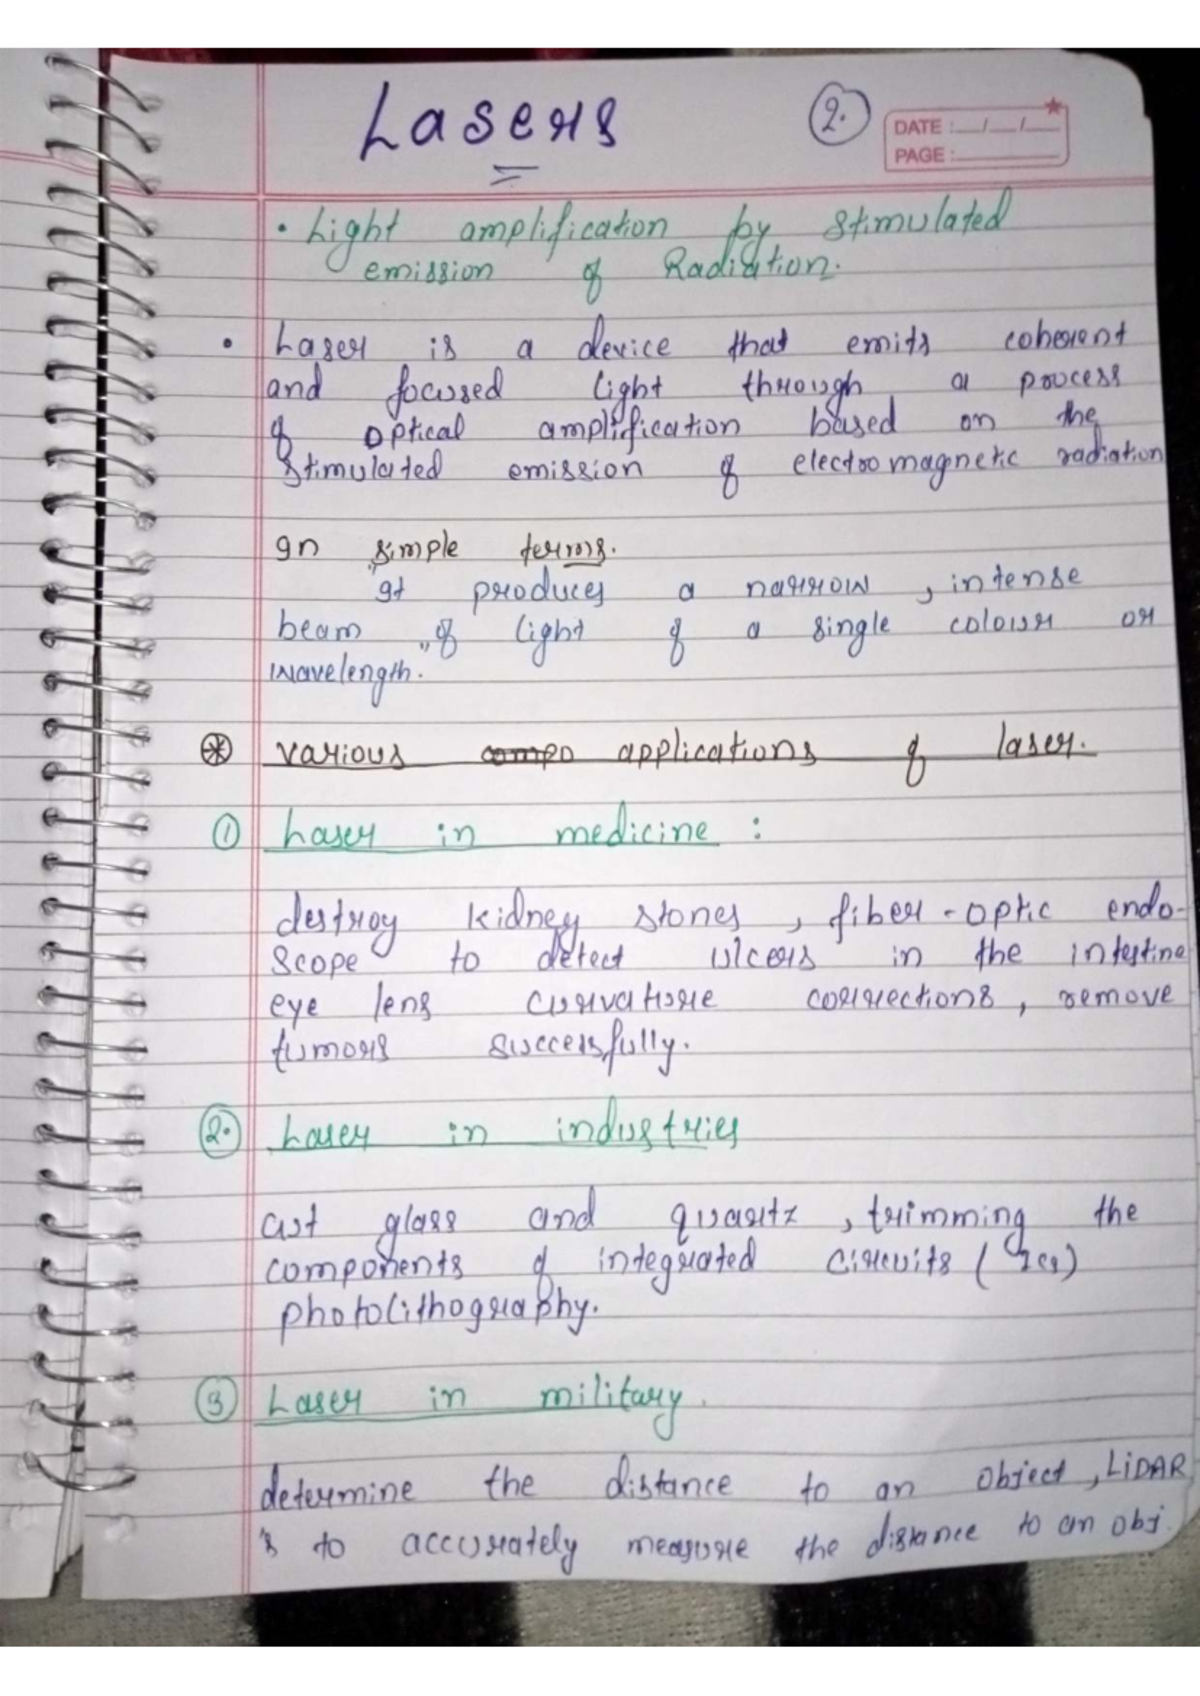 Lasers
2.
DATE : __/__/__
PAGE : ______
• Light amplification by Stimulated
emission of Radiation.
• Laser is a device that emits coherent
and focused light through a process
of optical amplification based on the
Stimulated emission of electromagnetic radiation
In simple terms.
"It produces a narrow, intense
beam" of light of a single colour or
wavelength.
⊛ various compo applications of laser.
① Laser in medicine :
destroy kidney stones, fiber-optic endo-
scope to detect ulcers in the intestine
eye lens curvature corrections, remove
tumors successfully.
2. Laser in industries
cut glass and quartz, trimming the
components of integrated circuits (Ics)
photolithography.
③ Laser in military.
determine the distance to an object, LiDAR
is to accurately measure the distance to an obj.